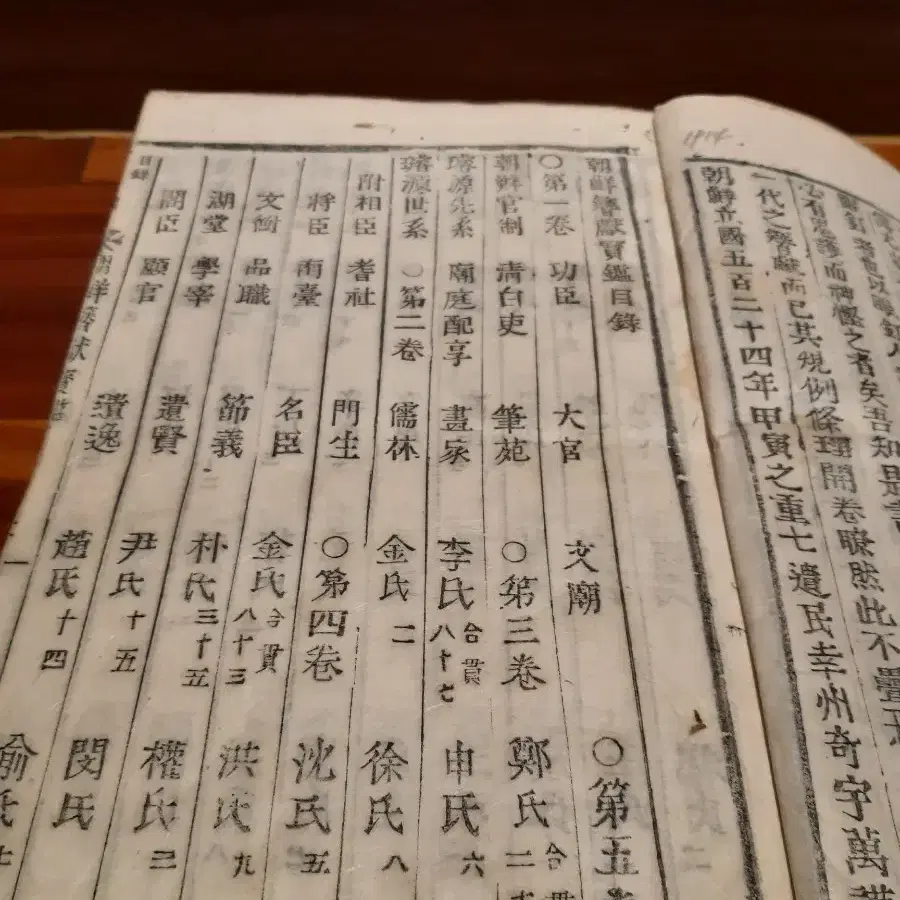 1914.
而神慳之者矣吾知是書
一代之簪獻而已其規例條理開卷瞭然此不疊
朝鮮立國五百二十四年甲寅之重七遺民幸州奇宇萬
朝鮮簪獻寶鑑目錄
○第一卷 功臣 大官 文廟 ○第五
朝鮮官制 清白吏 筆苑 ○第三卷 鄭氏 合貫
璿源先系 廟庭配享 畫家 李氏 合貫八十七 申氏 六
璿源世系 ○第二卷 儒林 金氏 二 徐氏 八
附相臣 耆社 門生 ○第四卷 沈氏 五
將臣 南臺 名臣 金氏 合貫八十三 洪氏 九
文衡 品職 節義 朴氏 三十五 權氏 三
湖堂 學宰 遺賢 尹氏 十五 閔氏
閣臣 顯官 遺逸 趙氏 十四 俞氏 七
目錄 朝鮮簪獻寶鑑 一